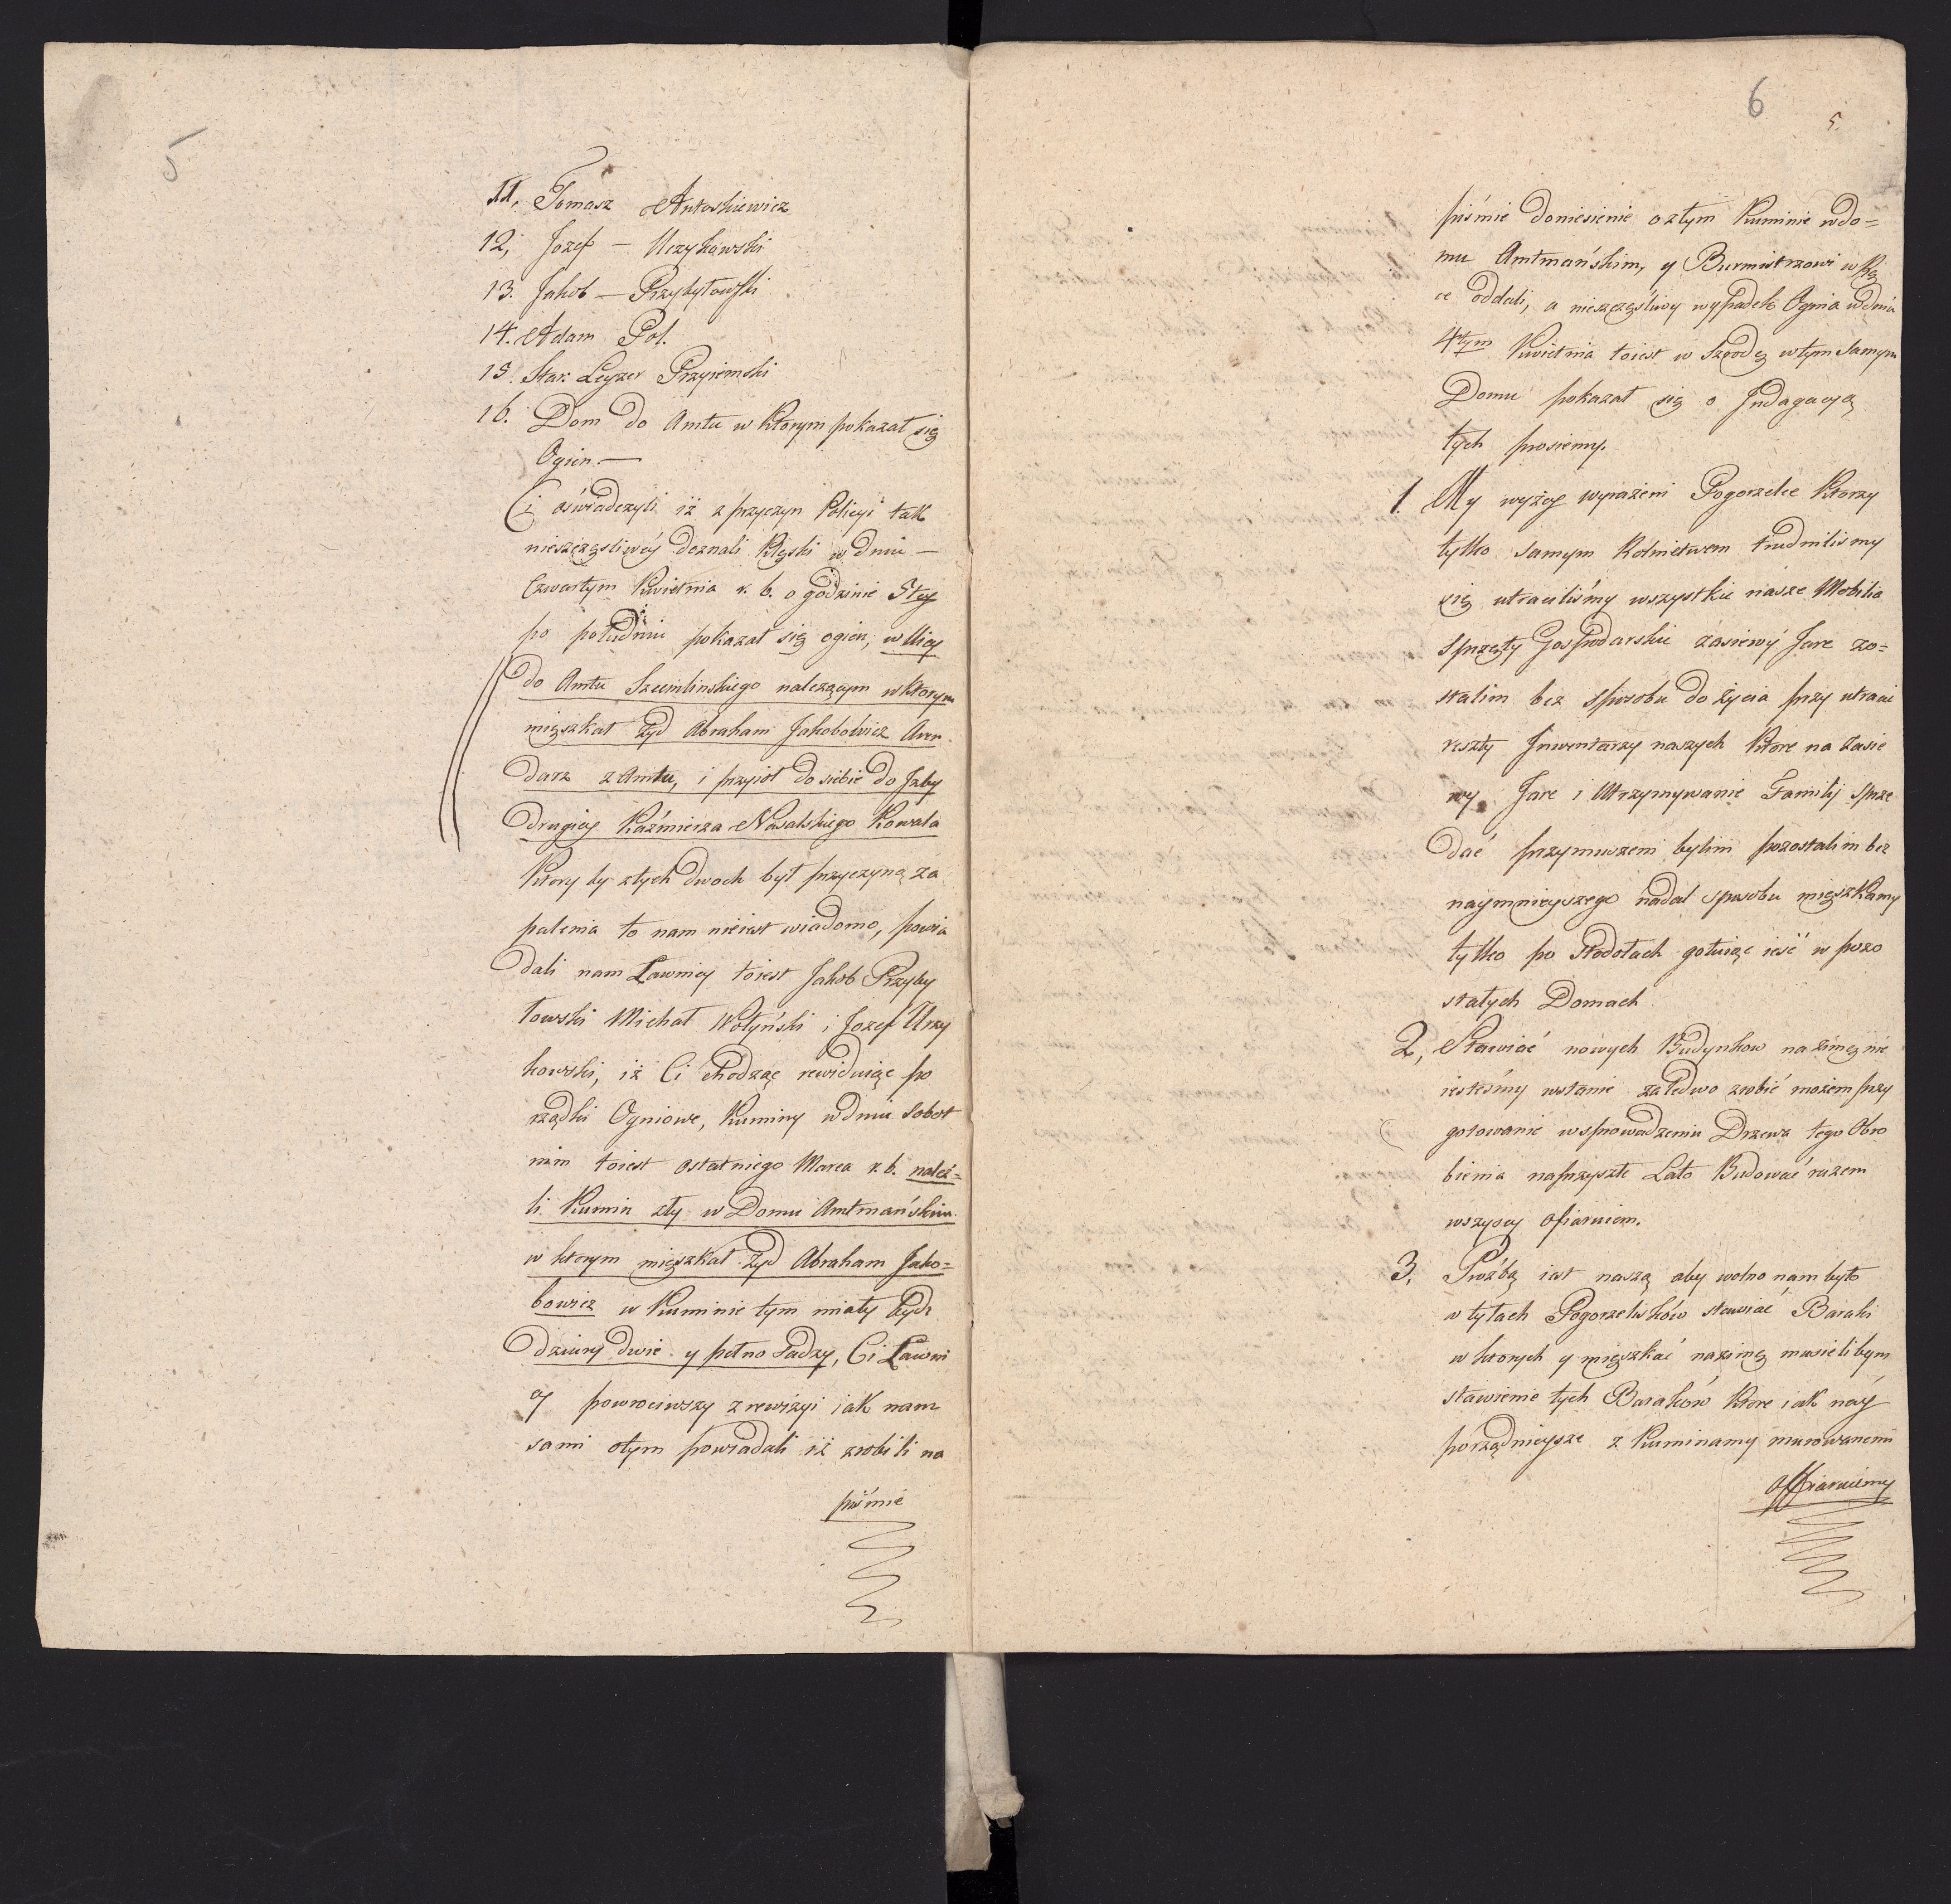 5
11, Tomasz Antoskiewicz
12, Jozef — Urzykowski
13. Jakob — Przybyłowski
14. Adam Pol.
15. Star: Leyzer Przyiemski
16. Dom do Amtu w Ktorym pokazał się
Ogien. —
Ci oświadczyli iż z przyczyn Policyi tak
nieszczęśliwéy doznali Klęski w dniu —
Czwartym Kwietnia r. b. o godzinie 5tey
po południu pokazał się ogien, w Ulicy
do Amtu Szumlinskiego należącym w ktorym
mięszkał Żyd Abraham Jakobowicz Aren-
darz z Amtu, i przyioł do siebie do Jzby
Drugiey Kaźmierza Nasalskiego Kowala
Ktory by z tych dwoch był przyczyną za
palenia to nam nieiest wiadomo, powia
dali nam Ławnicy toiest Jakob Przyby
łowski Michał Wołyński i Jozef Urzy
kowski, iż Ci chodząc rewiduiąc po
rządki Ogniowe, Kuminy w dniu Sobot
nim toiest ostatniego Marca r. b. należ=
li Kumin zły w Domu Amtmańskim
w ktorym mięszkał Żyd Abraham Jako=
bowicz w Kuminie tym miały bydz
dziury dwie y pełno Sadzy, Ci Ławni
cy powrociwszy z rewizyi iak nam
sami otym powiadali iż zrobili na
piśmie
6
5.
piśmie doniesienie o złym Kuminie w do=
mu Amtmańskim, y Burmistrzowi w Rę
ce oddali, a nieszczęśliwy wypadek Ognia w dniu
4tym Kwietnia toiest w Szrodę w tym samym
Domu pokazał się o Jndagacyą
tych prosiemy.
1. My wyżey wyrażeni Pogorzelce Ktorzy
tylko samym Rolnictwem trudnilismy
się utraciliśmy wszystkie nasze Mobilia
sprzęty Gospodarskie zasiewy Jare zo=
stalim bez sposobu do życia przy utraci
reszty Jnwentarzy naszych Ktore na zasie
wy Jare i Utrzymywanie Familij sprze
dać przymuszeni bylim pozostalim bez
naymnieyszego nadal sposobu mięszkamy
tylko po stodołach gotuiąc ieść w pozo
stałych Domach
2, Stawiać nowych Budynkow na zimę nie
iesteśmy wstanie zaledwo zrobić możem przy
gotowanie w sprowadzeniu Drzewa tego Obro
bienia na przyszłe Lato Budować razem
wszyscy ofiaruiem.
3, Proźbą iest naszą aby wolno nam było
w tyłach Pogorzelisków stawiać Baraki
w ktorych y mięszkać na zimę musielibym
stawienie tych Baraków Ktore iak náy
porządnieysze z Kuminamy murowanemi
offiaruiemy